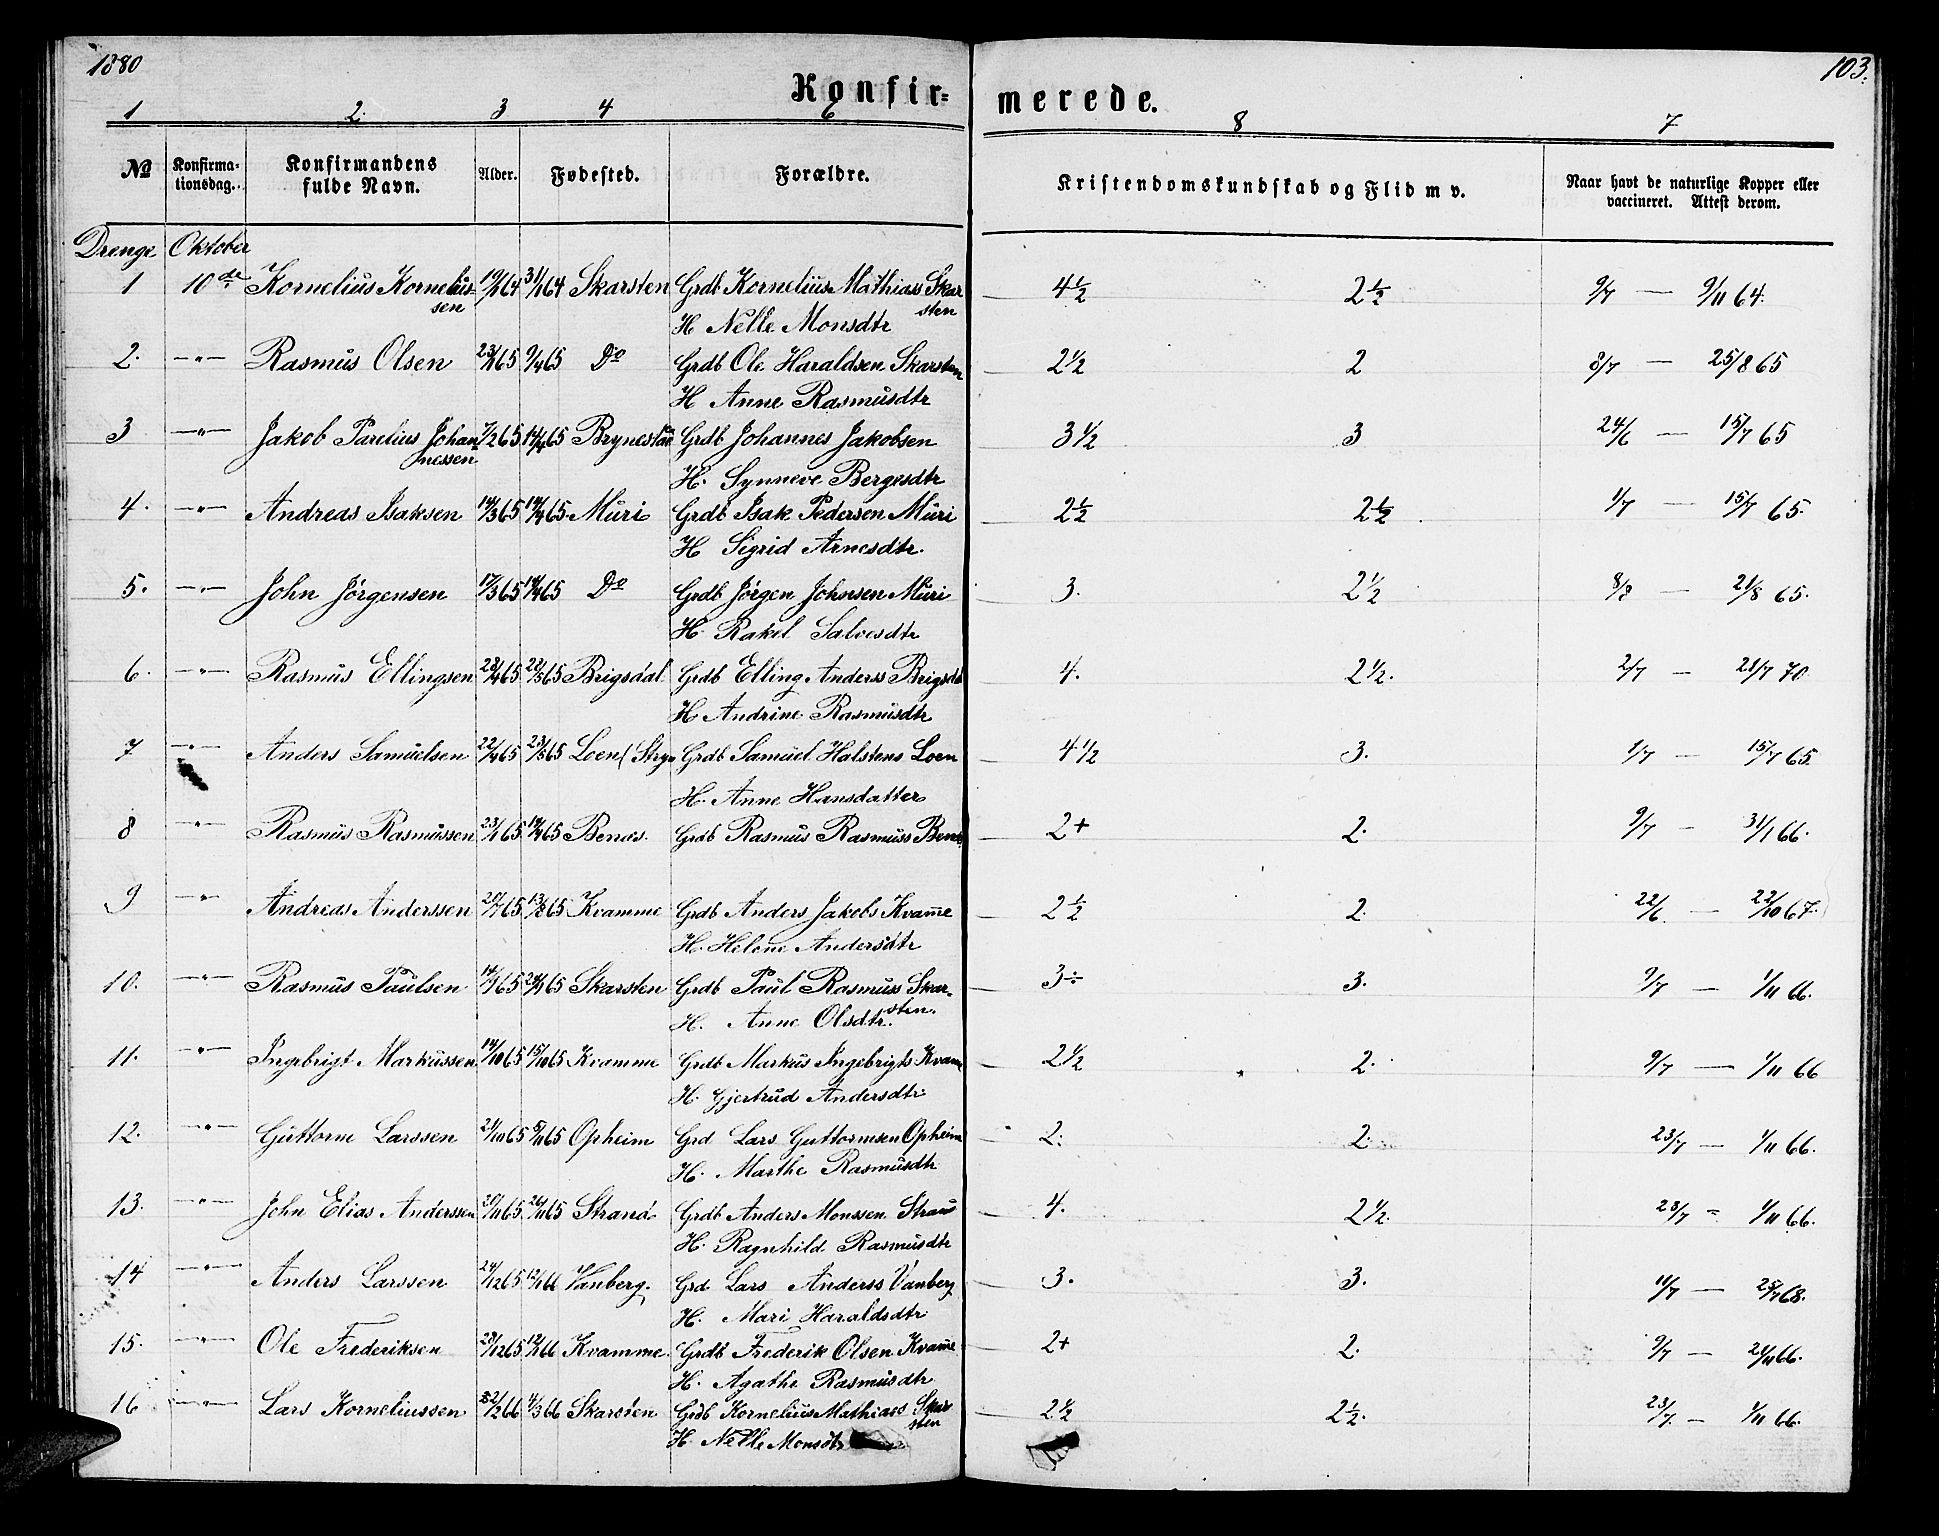 1880
103.
Konfir=
merede.
1 2. 3 4 6 8 7
№ Konfirma=tionsdag. Konfirmandens fulde Navn. Alder. Fødested. Forældre. Kristendomskundskab og Flid m v. Naar havt de naturlige Kopper eller vaccineret. Attest derom.
Drenge Oktober
1 10de Kornelius Kornelius= 64 64 Skarsten Grdb Kornelius Mathiass Skar 4½ 2½ 9/7 — 9/11 64.
sen sten
H Nelle Monsdtr
2. —"— Rasmus Olsen 23/1 65 9/4 65 Do Grdb Ole Haraldsen Skarsten 2½ 2 8/7 — 25/8 65
H Anne Rasmusdtr
3 —"— Jakob Parelius Johan 7/2 65 14/4 65 Grdb Johannes Jakobsen 3½ 3 24/6 — 15/7 65
nessen
H. Synneve Bergesdtr
4. —"— Andreas Isaksen 14/3 65 14/4 65. Muri Grdb Isak Pedersen Muri 2½ 2½ 1/7 — 15/7 65.
H Sigrid Arnesdtr.
5. —"— John Jörgensen 17/3 65 14/4 65 Do Grdb Jörgen Johnsen Muri 3. 2½ — 21/8 65.
H. Rakel Salvesdtr
6. —"— Rasmus Ellingsen 65 65 Brigsdal Grdb Elling Anderss Brigsdal 4. 2½. 2/7 — 70
H Andrine Rasmusdtr
7 —"— Anders Samuelsen 22/4 65 23/5 65 Loen (Stryn Grdb Samuel Halstens Loen 4½ 3. 1/7 — 15/7 65.
H. Anne Hansdatter
8 —"— Rasmus Rasmussen 65. 65 Benæs. Grdb Rasmus Rasmuss Benæs 2+ 2. 9/7 — 31/1 66.
9 —"— Andreas Anderssen 20/7 65 13/8 65 Kvamme Grdb Anders Jakobs Kvam̄e 2½ 2. 22/6. — 22/10 67.
H. Helene Andersdtr
10. —"— Rasmus Paulsen 65 65 Skarsten Grdb Paul Rasmuss Skar- 3÷ 3. 9/7 — 1/11 66.
sten.
H. Anne Olsdtr.
11. —"— Ingebrigt Markussen 14/10 65 15/10 65 Kvamme Grdb Markus Ingebrigts Kvam̄e 2½ 2. 9/7 — 1/11 66
H. Gjertrud Andersdtr.
12. —"— Guttorm Larssen 21/10 65 5/11 65 Opheim Grd Lars Guttormsen Opheim 2. 2. 23/7 — 1/11 66.
H. Marthe Rasmusdtr
13. —"— John Elias Anderssen 20/11 65 26/11 65 Strand Grdb Anders Monssen Strand 4. 2½. 23/7 = 1/11 66.
H. Ragnhild Rasmusdtr
14 —"— Anders Larssen 24/12 65 66 Vanberg. Grd Lars Anderss Vanberg 3. 3. 11/7 — 25/7 68.
H. Mari Haraldsdtr
15. —"— Ole Frederiksen 65 66 Kvamme. Grdb Frederik Olsen Kvam̄e 2+ 2. 9/7 — 66.
H. Agathe Rasmusdtr
16 —"— Lars Korneliussen 66 4/3 66 Skarsten Grdb Kornelius Mathiass Skar 2½ 2½. 23/7. — 1/11 66.
sten
H. Nelle Monsdtr